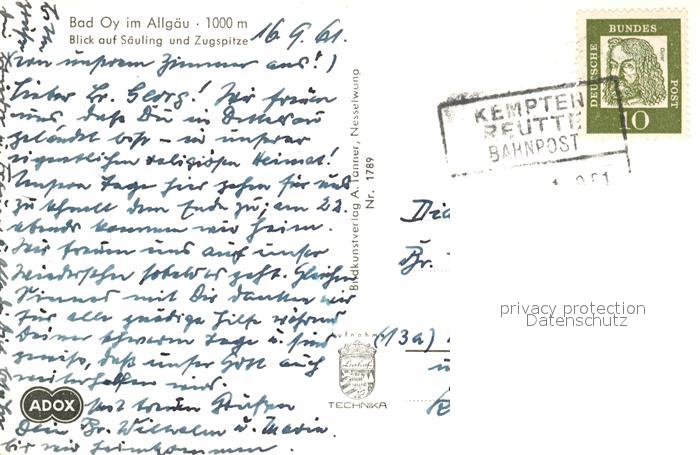 Bad Oy im Allgäu · 1000 m
Blick auf Säuling und Zugspitze
16.9.61.
(von unserem Zimmer aus!)
Lieber Br. Georg! Wir freuen
uns, daß Du in
gelandet bist – in unserer
eigentlichen religiösen Heimat!
Unsere Tage hier gehen für uns
zu schnell dem Ende zu; am 22.
abends kommen wir heim.
Wir freuen uns auf unser
Wiedersehn sobald es geht. Gleichen
Sinnes mit Dir danken wir
für alle gnädige Hilfe während
Deiner schweren Tage u. sind
gewiß, daß unser Gott auch
weiterhelfen wird.
Mit treuen Grüßen
Dein Br. Wilhelm u. Maria.
wir heimkommen
Bildkunstverlag A. Tanner, Nesselwang
Nr. 1789
ADOX
TECHNIKA
KEMPTEN
REUTTE
BAHNPOST
DEUTSCHE
BUNDES
POST
Dürer
10
Br.
(13a)
privacy protection
Datenschutz